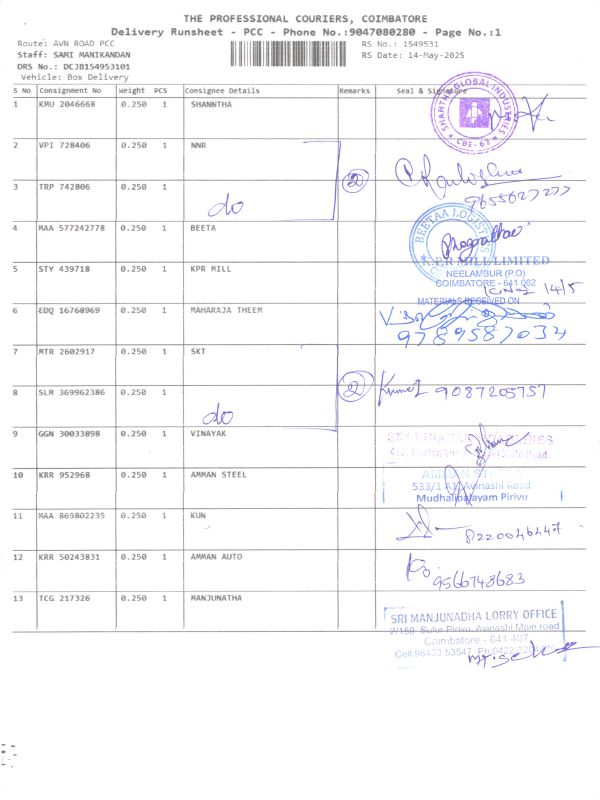 THE PROFESSIONAL COURIERS, COIMBATORE
Delivery Runsheet - PCC - Phone No.:9047080280 - Page No.:1
Route: AVN ROAD PCC RS No.: 1549531
Staff: SAMI MANIKANDAN RS Date: 14-May-2025
DRS No.: DCJB154953101
Vehicle: Box Delivery
S No Consignment No Weight PCS Consignee Details Remarks Seal & Signature
1 KMU 2046668 0.250 1 SHANNTHA
SHANTHA GLOBAL INDUSTRIES
CBE-62
2 VPI 728406 0.250 1 NNR
2
3 TRP 742806 0.250 1
do
9655627277
4 MAA 577242778 0.250 1 BEETA
BEETAA LOGIST
K.P.R MILL LIMITED
5 STY 439718 0.250 1 KPR MILL
NEELAMBUR (P.O)
COIMBATORE - 641 062
14/5
MATERIALS RECEIVED ON
6 EDQ 16768969 0.250 1 MAHARAJA THEEM
9789587034
7 MTR 2602917 0.250 1 SKT
2
8 SLM 369962386 0.250 1
do
9087205757
9 GGN 30033898 0.250 1 VINAYAK
10 KRR 952968 0.250 1 AMMAN STEEL
AMMAN STEELS
533/1 A1, Avinashi Road
Mudhalipalayam Pirivu
11 MAA 869802235 0.250 1 KUN
8220046447
12 KRR 50243831 0.250 1 AMMAN AUTO
9566748683
13 TCG 217326 0.250 1 MANJUNATHA
SRI MANJUNADHA LORRY OFFICE
2/150, Sulur Pirivu, Avinashi Main road
Coimbatore - 641 407
Cell:98433 53547, Ph:0422